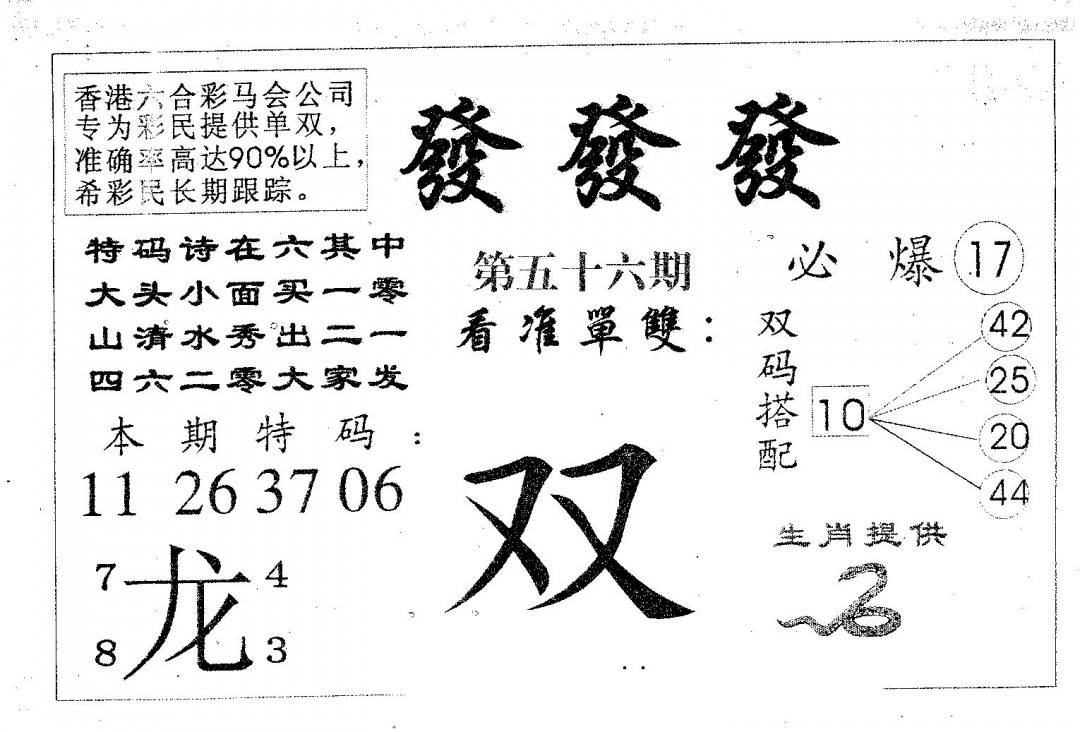 香港六合彩马会公司
专为彩民提供单双，
准确率高达90%以上，
希彩民长期跟踪。
發發發
特码诗在六其中
大头小面买一零
山清水秀出二一
四六二零大家发
第五十六期
看准單雙：
必爆 17
双码搭配
10
42
25
20
44
本期特码：
11 26 37 06
双
生肖提供
7 龙 4
8 3